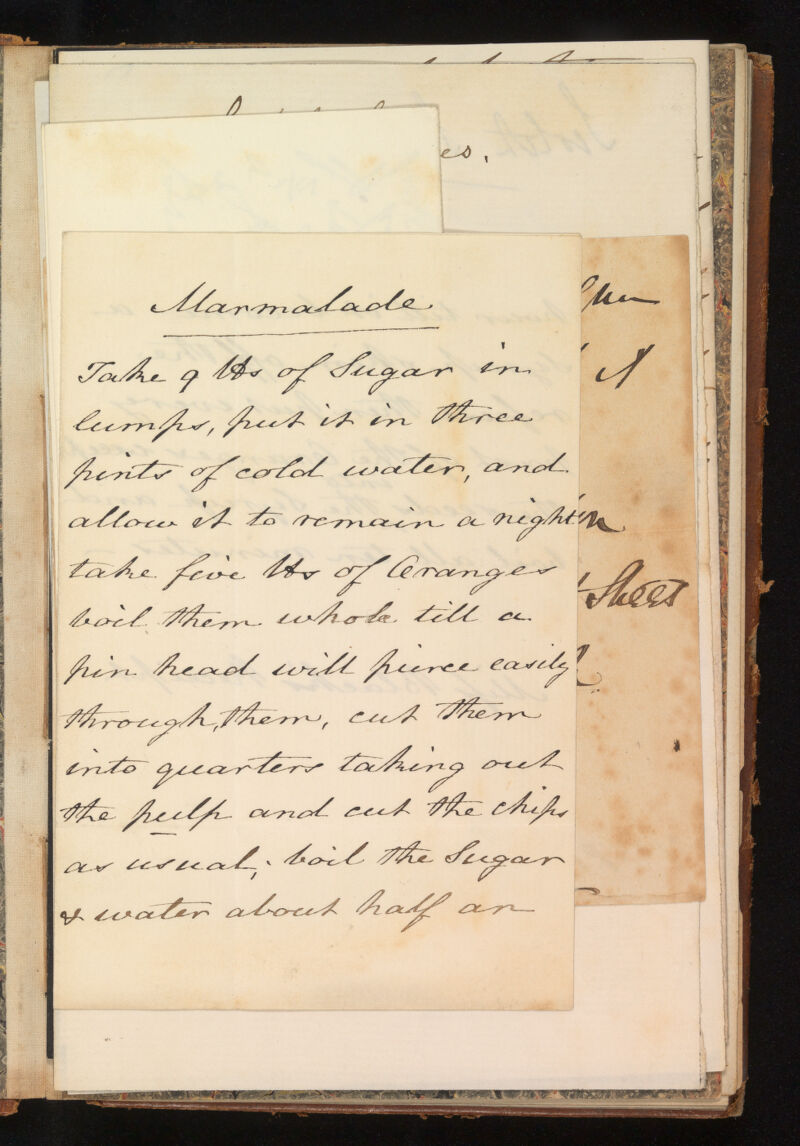 es.
Marmalade
Take 9 lbs of Sugar in
lumps, put it in three
pints of cold water, and
allow it to remain a night
take five lbs of Oranges
boil them whole till a
pin head will pierce easily
through, them, cut them
into quarters taking out
the pulp and cut the chips
as usual; boil the Sugar
& water about half an
Sheets